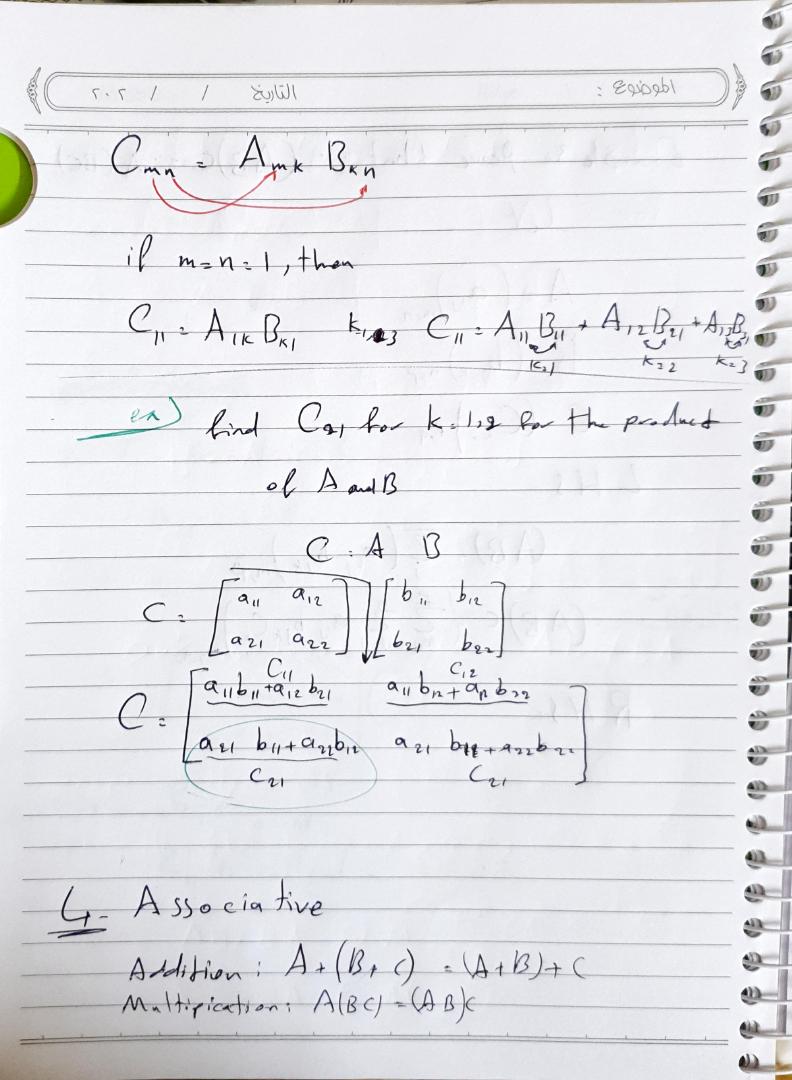 الموضوع : التاريخ / / ٢٠٢
Cmn = Amk Bkn
if m=n=1, then
C11 = A1k Bk1 C11 = A11 B11 + A12 B21 + A13 B31
k=1 k=2 k=3
ex) find C21 for k=1,2 for the product
of A and B
C = A B
C = [a11 a12 [b11 b12
a21 a22] b21 b22]
C11 C12
C = [a11 b11 + a12 b21 a11 b12 + a12 b22
a21 b11 + a22 b12 a21 b12 + a22 b22]
C21 C21
4- Associative
Addition : A + (B + C) = (A + B) + C
Multipication : A(BC) = (AB)C